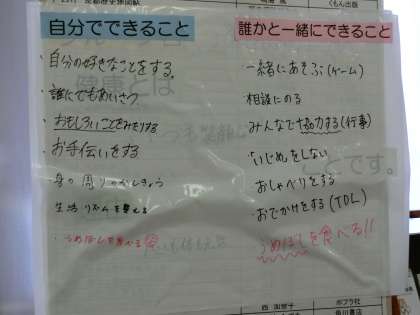 くもん出版
自分でできること
・自分の好きなことをする。
・誰にでもあいさつ
・おもしろいことをみたりする
・お手伝いをする
・身の周りの
・生活リズムを整える
・うめぼしを食べる
誰かと一緒にできること
・一緒にあそぶ(ゲーム)
・相談にのる
・みんなで協力する(行事)
・いじめをしない
・おしゃべりをする
・おでかけをする(TDL)
・うめぼしを食べる!!
健康とは
とです。
ポプラ社
角川書店